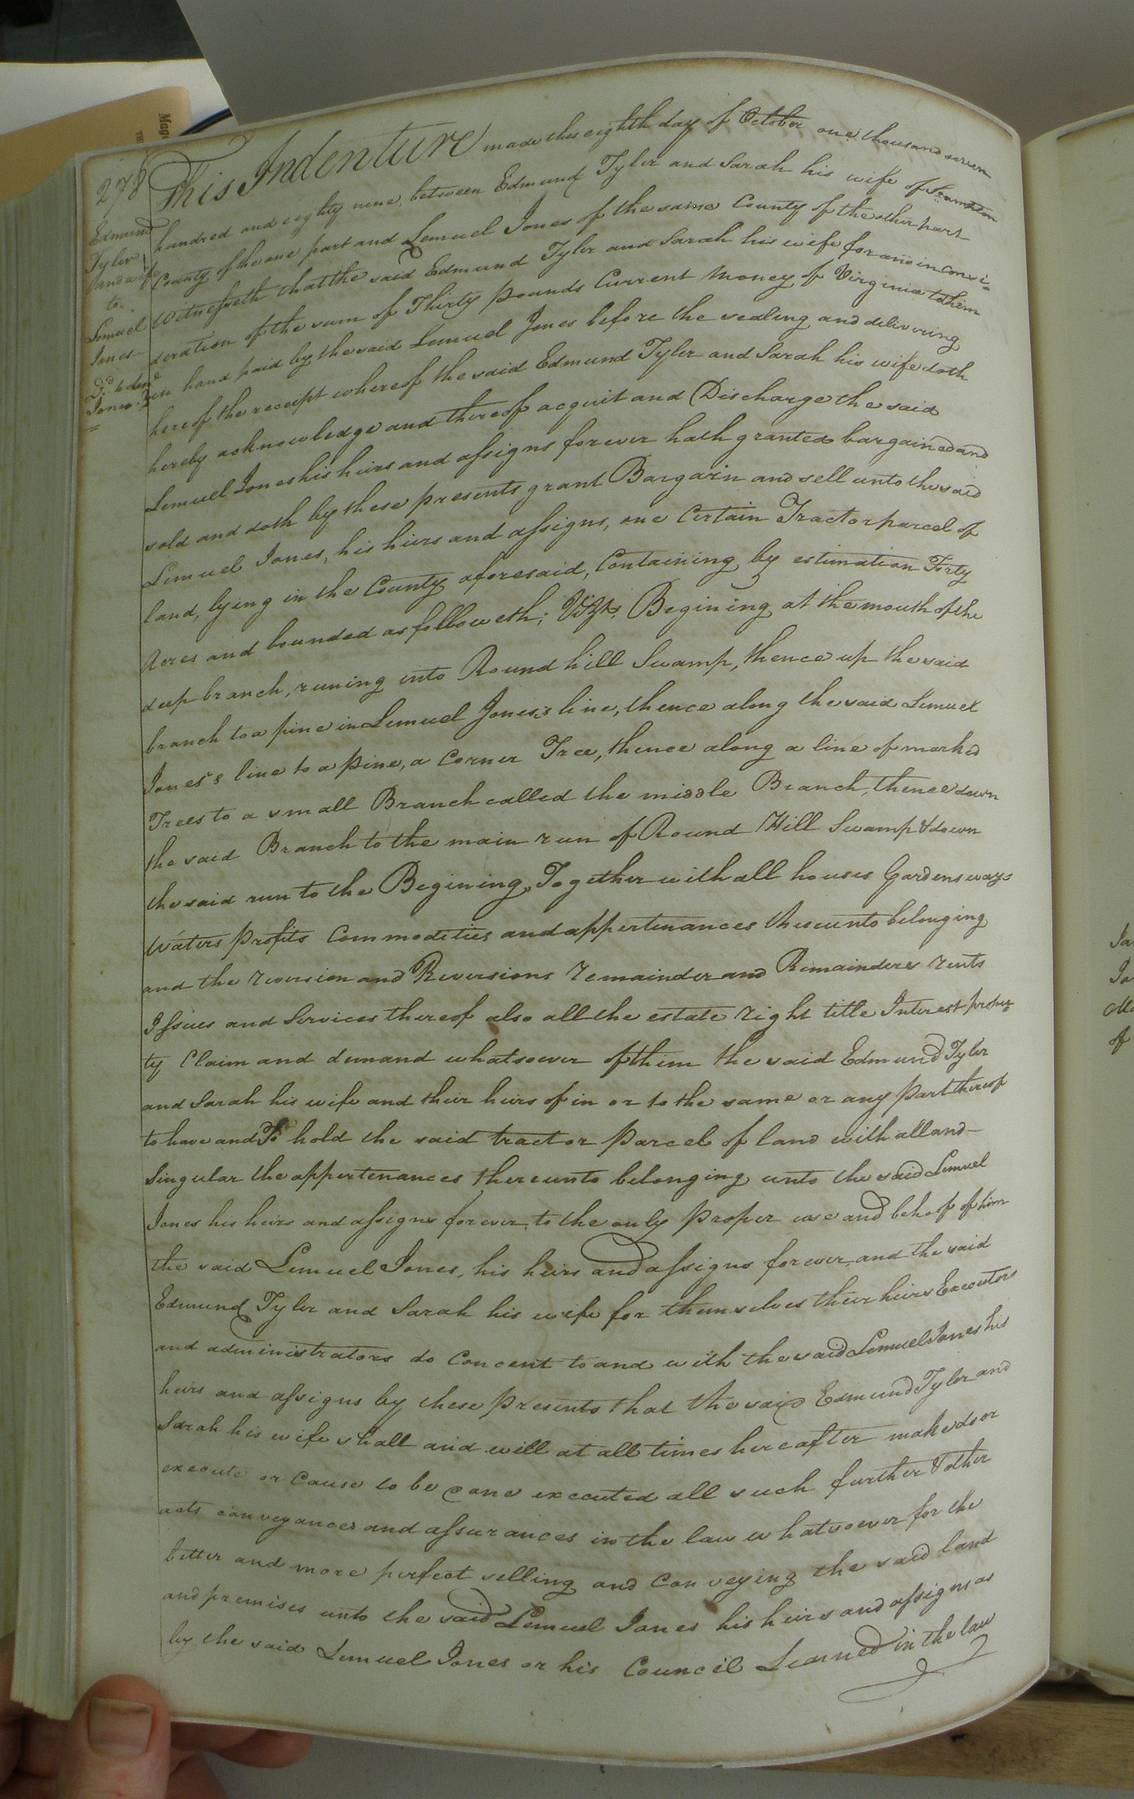 278
Edmund
Tyler
and wife
to
Lemuel
Jones
Jones
This Indenture made this eighth day of October one thousand seven
hundred and eighty nine, between Edmund Tyler and Sarah his wife of
County of the one part and Lemuel Jones of the same County of the other part
Witnesseth that the said Edmund Tyler and Sarah his wife for and in consi-
deration of the sum of Thirty pounds Current Money of Virginia to them
in hand paid by the said Lemuel Jones before the sealing and delivering
hereof the receipt whereof the said Edmund Tyler and Sarah his wife doth
hereby acknowledge and thereof acquit and Discharge the said
Lemuel Jones his heirs and assigns forever hath granted bargained and
sold and doth by these presents grant Bargain and sell unto the said
Lemuel Jones, his heirs and assigns, one Certain Tract or parcel of
land, lying in the County aforesaid, Containing by estimation Forty
Acres and bounded as followeth; Vizt, Begining at the mouth of the
deep branch, runing into Round hill Swamp, thence up the said
branch to a pine in Lemuel Jones's line, thence along the said Lemuel
Jones's line to a Pine, a Corner Tree, thence along a line of marked
Trees to a small Branch called the middle Branch, thence down
the said Branch to the main run of Round Hill Swamp & down
the said run to the Begining, Together with all houses Gardens ways
Waters Profits Commodities and appertenances thereunto belonging
and the reversion and Reversions remainder and Remainders rents
Issues and Services thereof also all the estate right title Interest proper
ty Claim and demand whatsoever of them the said Edmund Tyler
and Sarah his wife and their heirs of in or to the same or any Part thereof
to have and To hold the said tract or Parcel of land with all and
Singular the appertenances thereunto belonging unto the said Lemuel
Jones his heirs and assigns forever, to the only Proper use and behoof of him
the said Lemuel Jones, his heirs and assigns forever, and the said
Edmund Tyler and Sarah his wife for themselves their heirs Executors
and administrators do Concent to and with the said Lemuel Jones his
heirs and assigns by these Presents that the said Edmund Tyler and
Sarah his wife shall and will at all times hereafter make do or
execute or Cause to be done executed all such further & other
acts conveyances and assurances in the law whatsoever for the
better and more perfect selling and Conveying the said land
and premises unto the said Lemuel Jones his heirs and assigns as
by the said Lemuel Jones or his Council Learned in the law